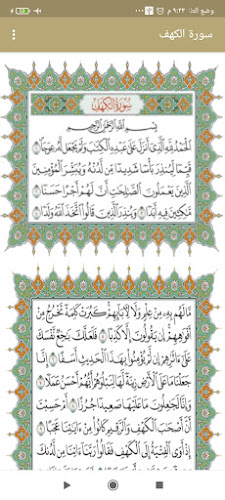 وضع الط... ٩:٢٣ م
سورة الكهف
سُورَةُ الكَهْفِ
بِسْمِ اللَّهِ الرَّحْمَٰنِ الرَّحِيمِ
ٱلْحَمْدُ لِلَّهِ ٱلَّذِىٓ أَنزَلَ عَلَىٰ عَبْدِهِ ٱلْكِتَٰبَ وَلَمْ يَجْعَل لَّهُۥ عِوَجَا ۜ ١
قَيِّمًا لِّيُنذِرَ بَأْسًا شَدِيدًا مِّن لَّدُنْهُ وَيُبَشِّرَ ٱلْمُؤْمِنِينَ
ٱلَّذِينَ يَعْمَلُونَ ٱلصَّٰلِحَٰتِ أَنَّ لَهُمْ أَجْرًا حَسَنًا ٢
مَّٰكِثِينَ فِيهِ أَبَدًا ٣ وَيُنذِرَ ٱلَّذِينَ قَالُوا۟ ٱتَّخَذَ ٱللَّهُ وَلَدًا ٤
مَّا لَهُم بِهِۦ مِنْ عِلْمٍ وَلَا لِءَابَآئِهِمْ كَبُرَتْ كَلِمَةً تَخْرُجُ مِنْ
أَفْوَٰهِهِمْ إِن يَقُولُونَ إِلَّا كَذِبًا ٥ فَلَعَلَّكَ بَٰخِعٌ نَّفْسَكَ
عَلَىٰٓ ءَاثَٰرِهِمْ إِن لَّمْ يُؤْمِنُوا۟ بِهَٰذَا ٱلْحَدِيثِ أَسَفًا ٦ إِنَّا
جَعَلْنَا مَا عَلَى ٱلْأَرْضِ زِينَةً لَّهَا لِنَبْلُوَهُمْ أَيُّهُمْ أَحْسَنُ عَمَلًا ٧
وَإِنَّا لَجَٰعِلُونَ مَا عَلَيْهَا صَعِيدًا جُرُزًا ٨ أَمْ حَسِبْتَ
أَنَّ أَصْحَٰبَ ٱلْكَهْفِ وَٱلرَّقِيمِ كَانُوا۟ مِنْ ءَايَٰتِنَا عَجَبًا ٩
إِذْ أَوَى ٱلْفِتْيَةُ إِلَى ٱلْكَهْفِ فَقَالُوا۟ رَبَّنَآ ءَاتِنَا مِن لَّدُنكَ